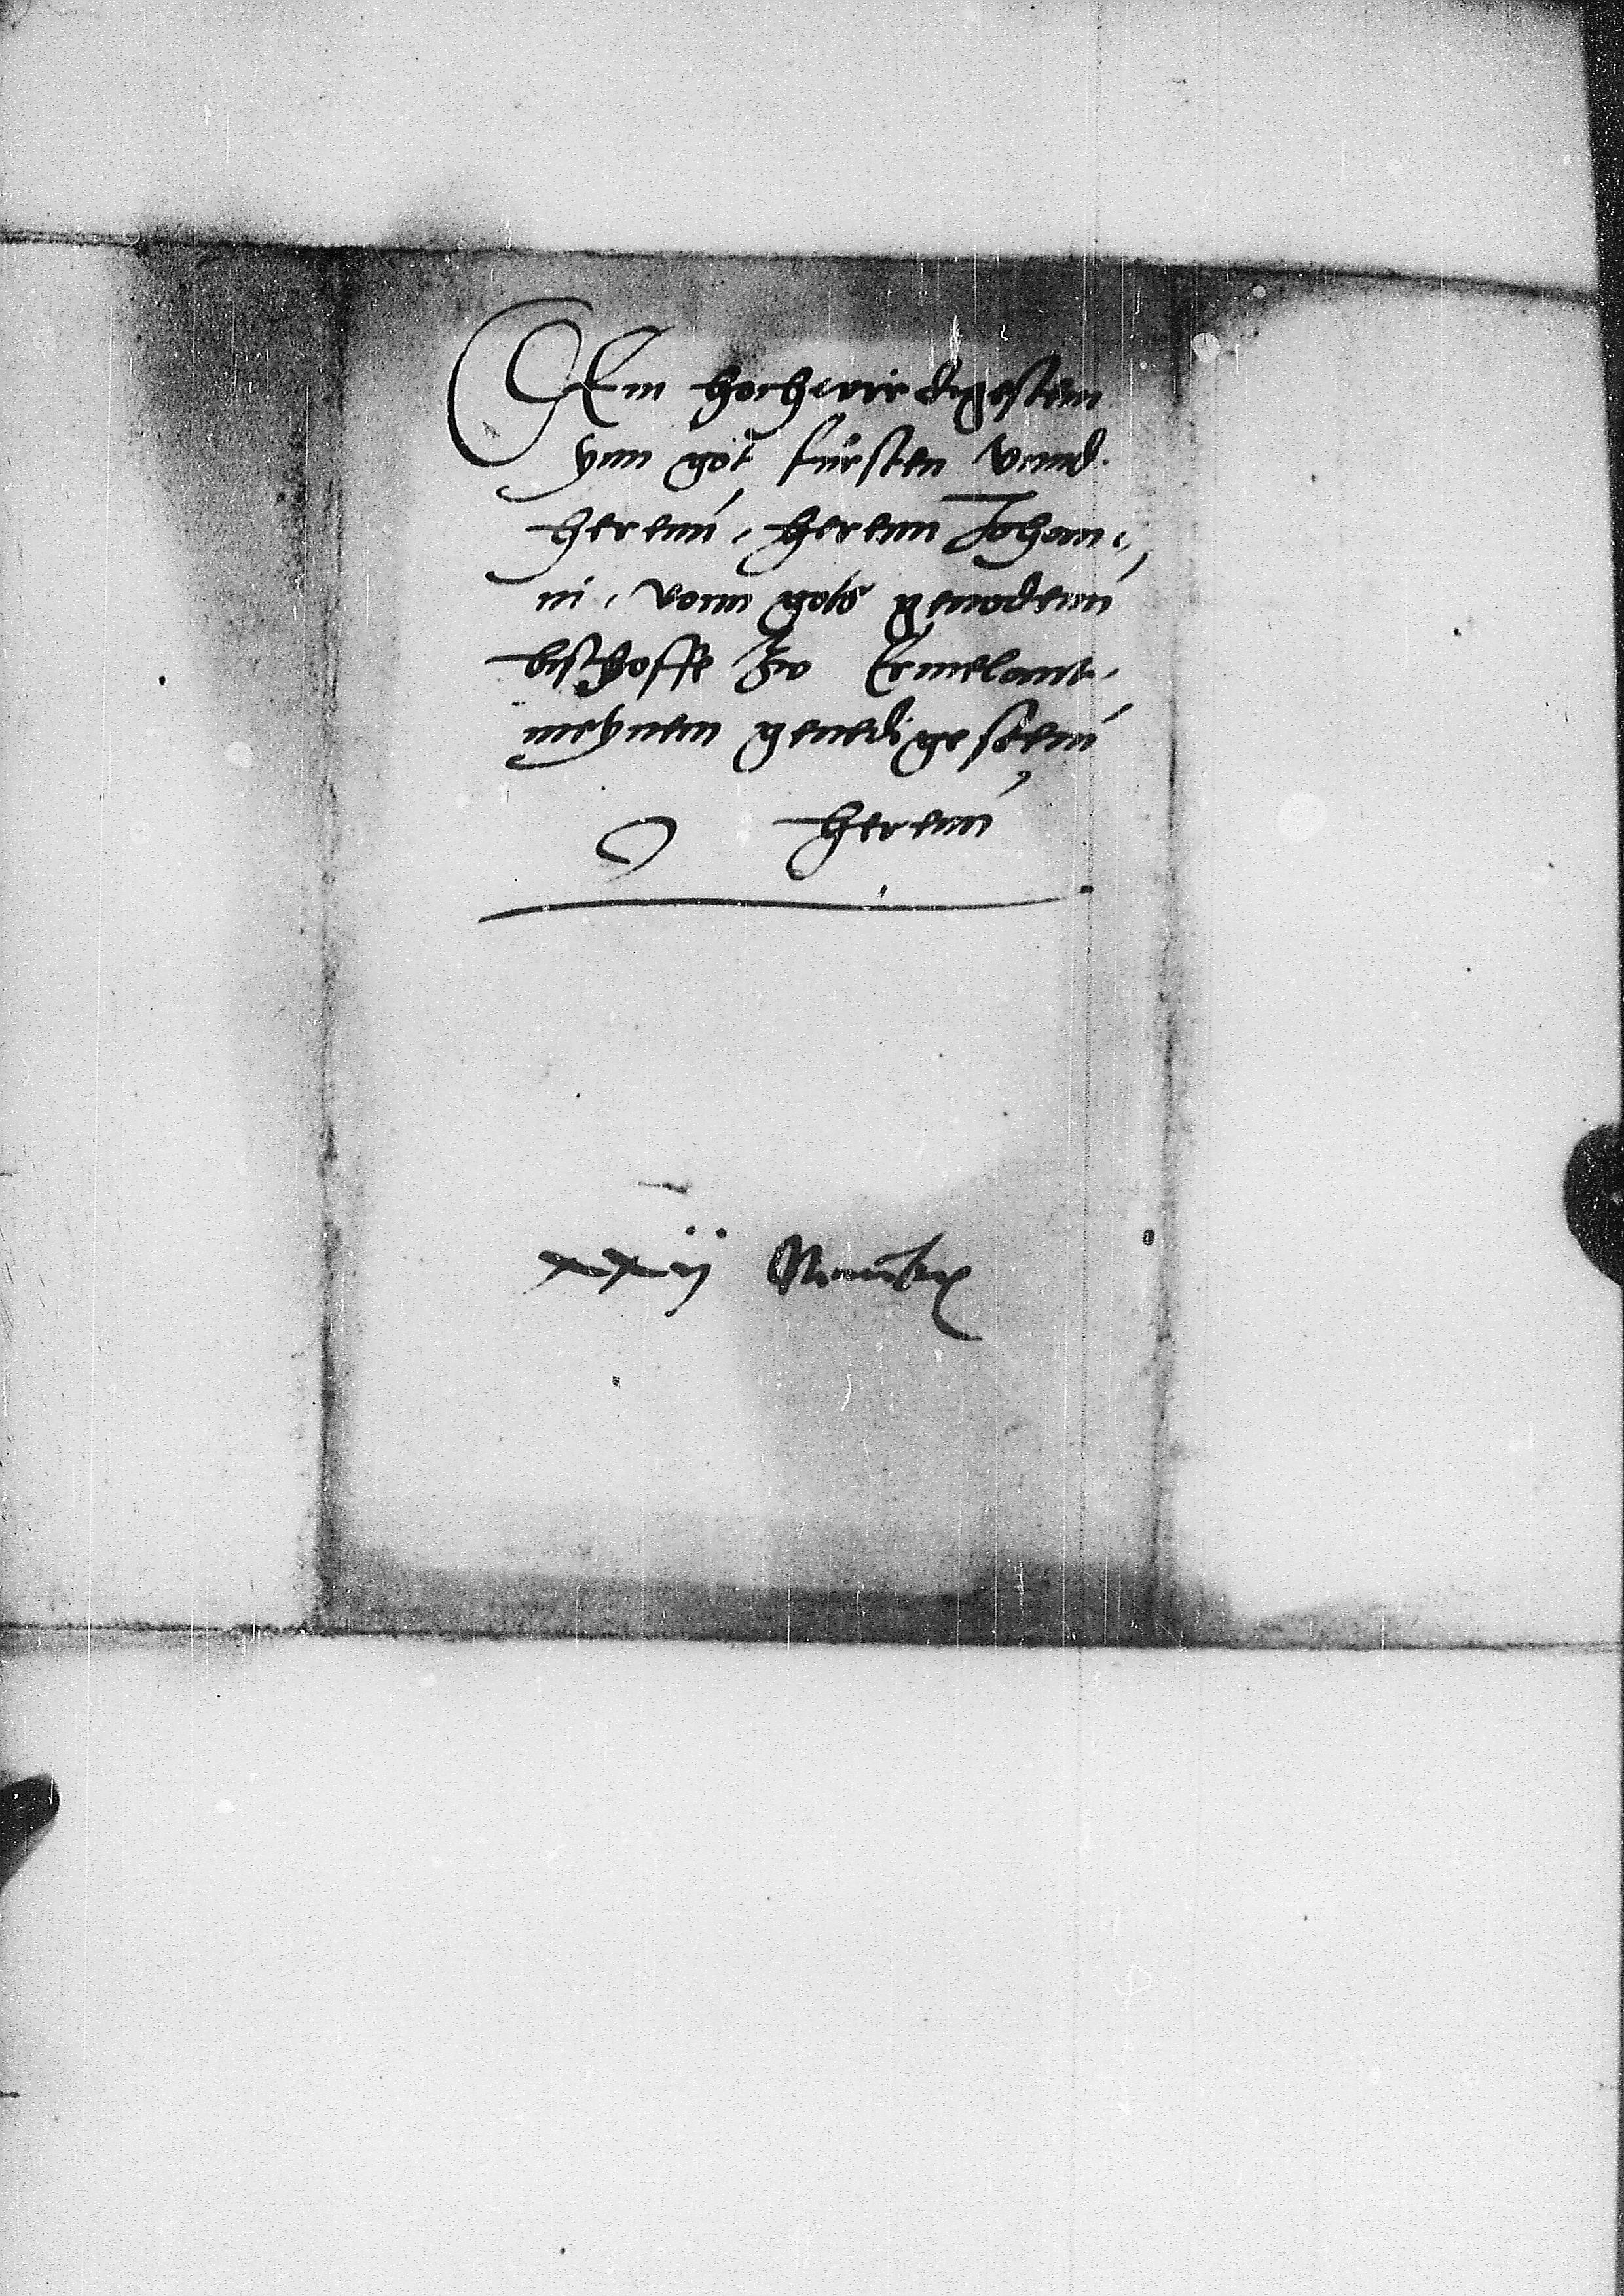 Dem hochwirdigestenn
ynn got fursten vnnd
herenn, herenn Johan⸗
ni, vonn gots genodenn
bischoffe zw Ermelant,
meynem genedigestenn
herenn
xxij Nouembris